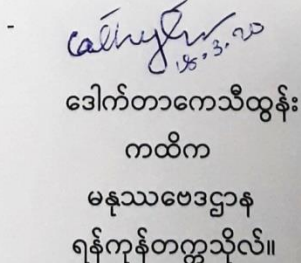 -
18.3.20
ဒေါက်တာကေသီထွန်း
ကထိက
မနုဿဗေဒဌာန
ရန်ကုန်တက္ကသိုလ်။